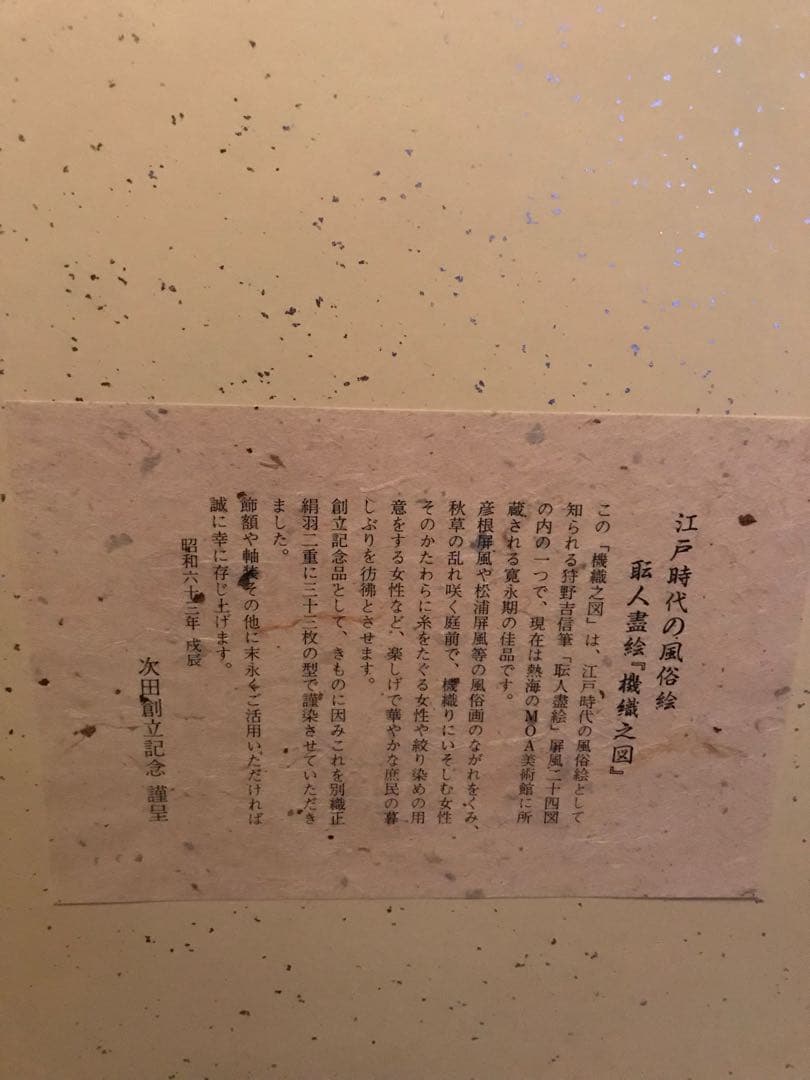 江戸時代の風俗絵
職人盡絵『機織之図』
この「機織之図」は、江戸時代の風俗絵として
知られる狩野吉信筆「職人盡絵」屏風二十四図
の内の一つで、現在は熱海のMOA美術館に所
蔵される寛永期の佳品です。
彦根屏風や松浦屏風等の風俗画のながれをくみ、
秋草の乱れ咲く庭前で、機織りにいそしむ女性
そのかたわらに糸をたぐる女性や絞り染めの用
意をする女性など、楽しげで華やかな庶民の暮
しぶりを彷彿とさせます。
創立記念品として、きものに因みこれを別織正
絹羽二重に三十三枚の型で謹染させていただき
ました。
飾額や軸装その他に末永くご活用いただければ
誠に幸に存じ上げます。
昭和六十三年 戊辰
次田創立記念 謹呈